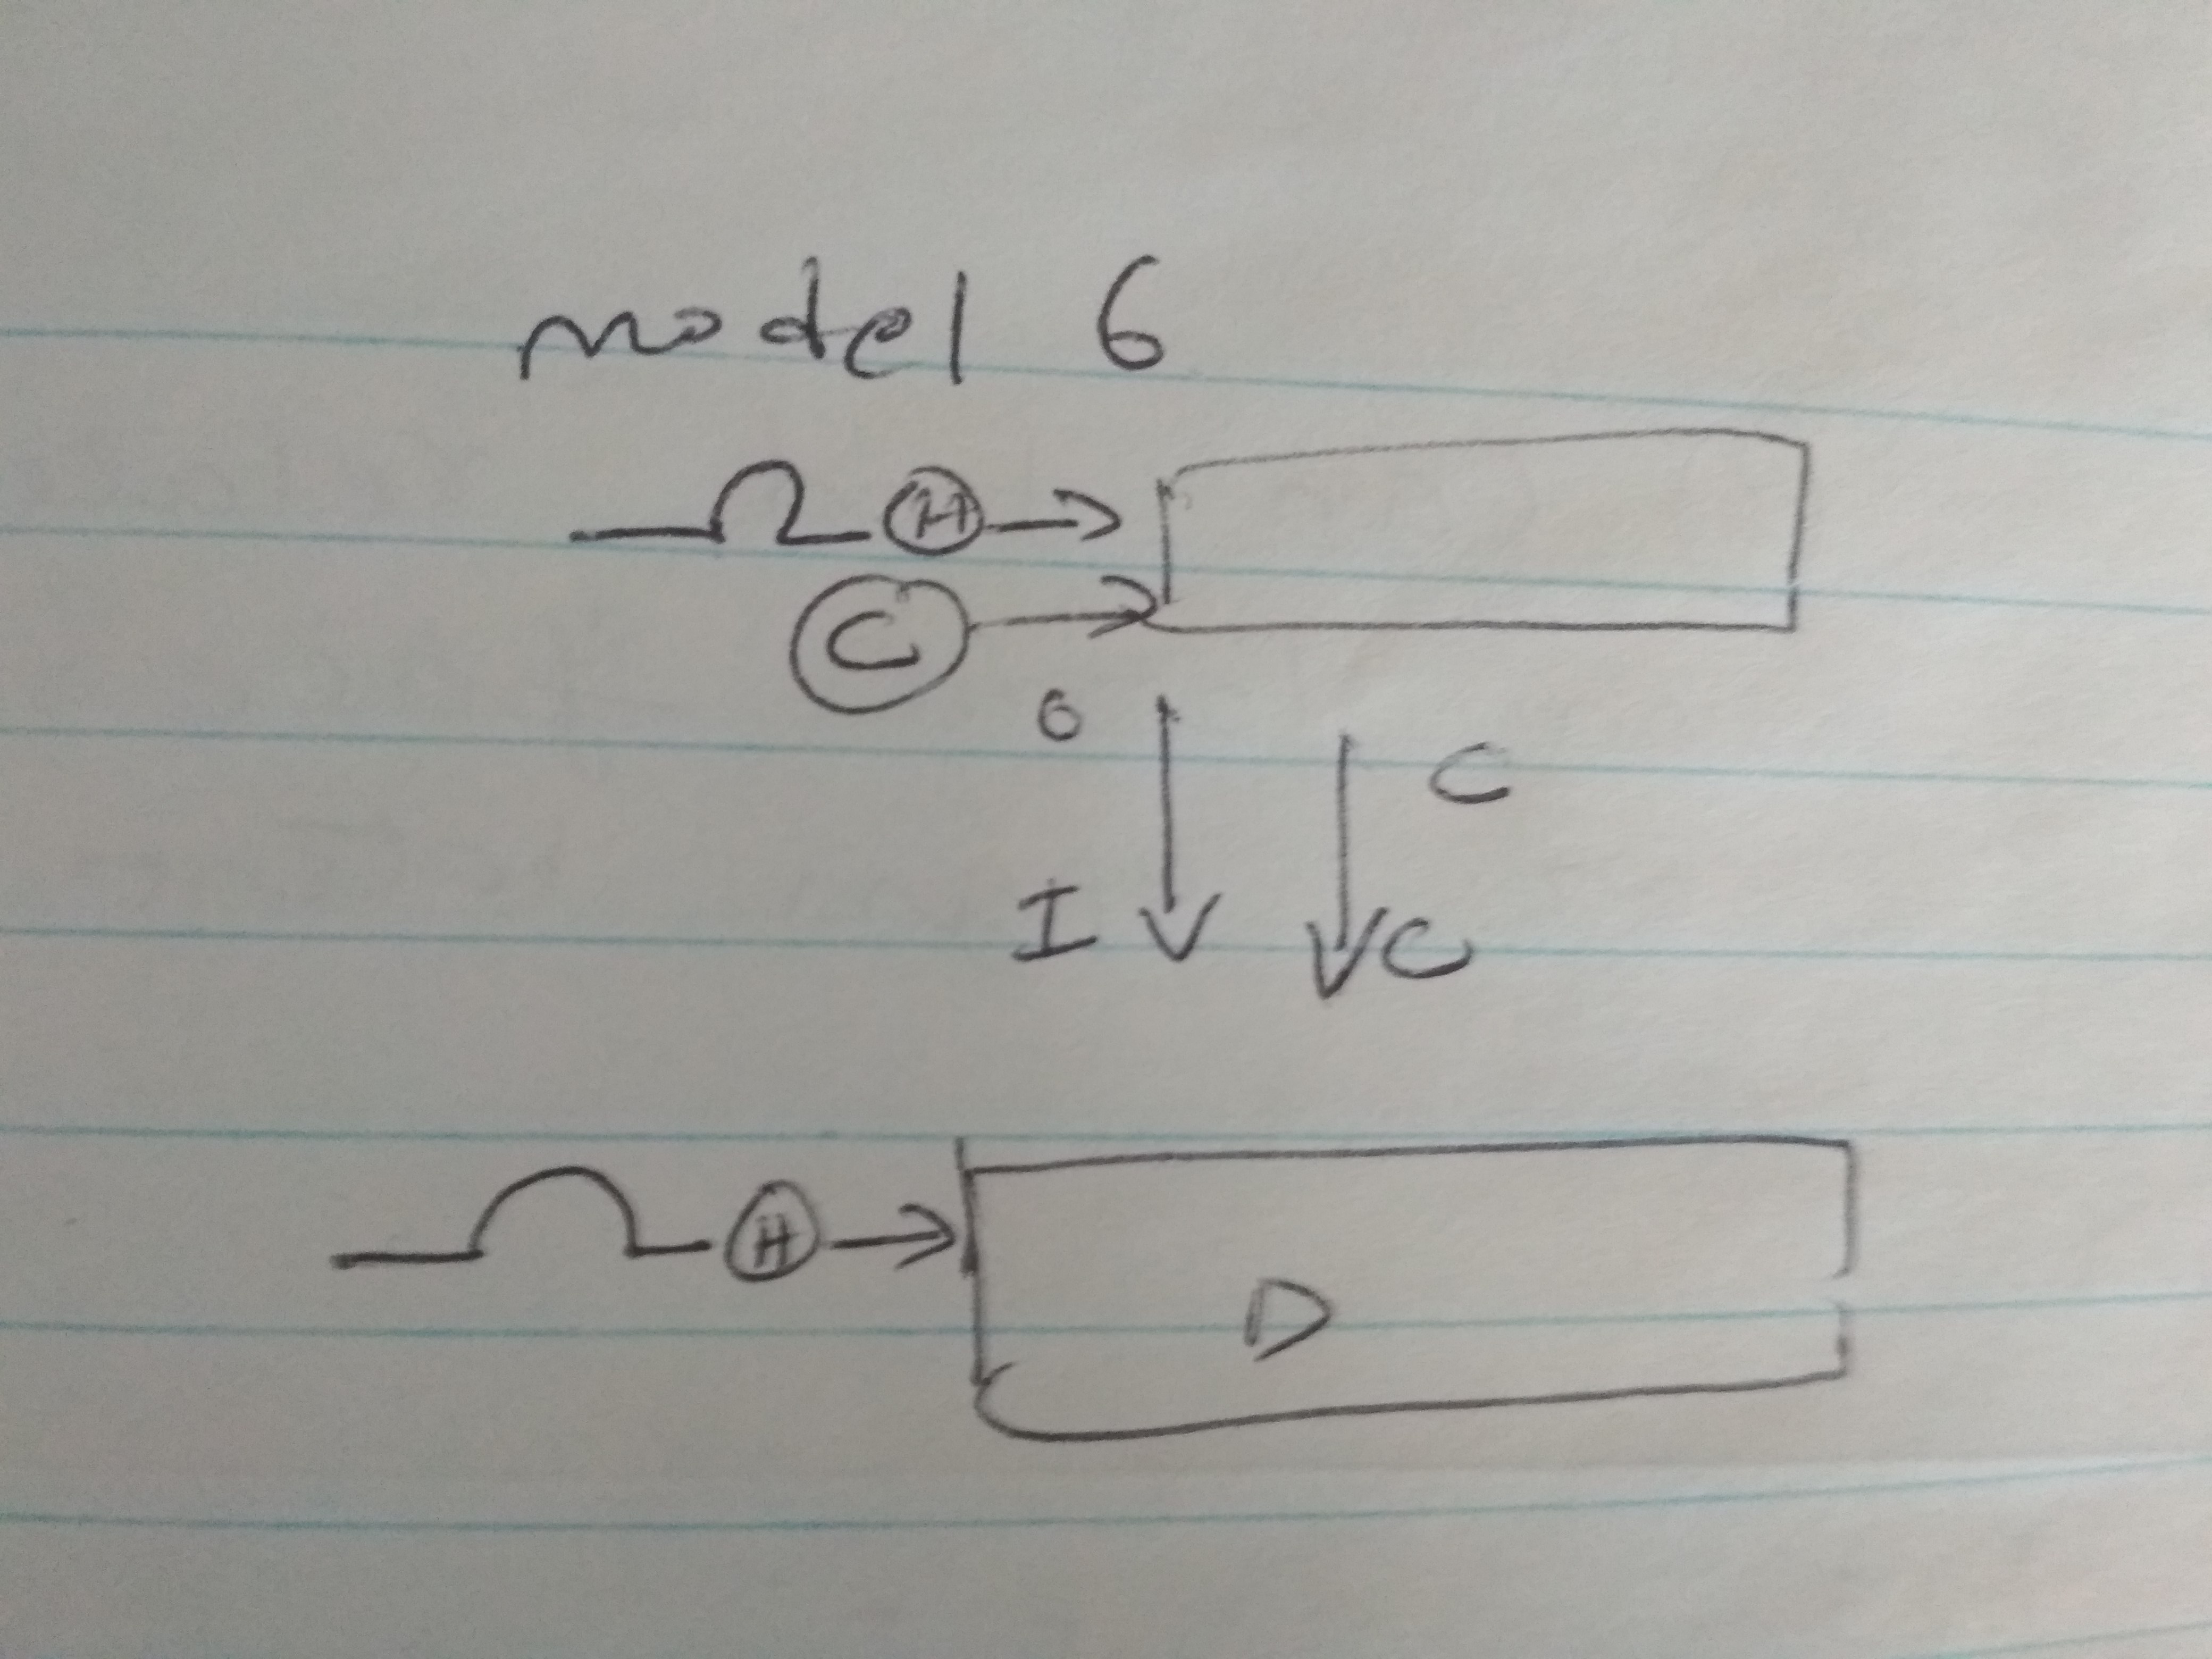 model 6
H
C
O
C
I
C
H
D